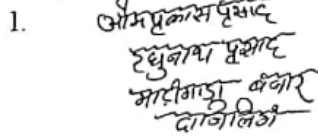 1. ओमप्रकास प्रसाद
रघुनाथ प्रसाद
माटीगाड़ा बजार
दार्जिलिगं